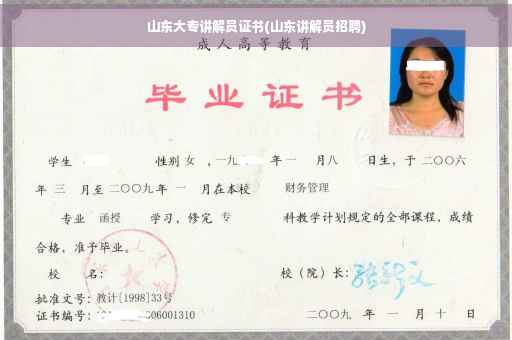 山东大专讲解员证书(山东讲解员招聘)
成人高等教育
毕业证书
学生 性别 女 ,一九 年 一 月八 日生，于 二〇〇六
年 三 月至 二〇〇九 年 一 月在本校 财务管理
专业 函授 学习，修完 专 科教学计划规定的全部课程，成绩
合格，准予毕业。
校 名： 校（院）长：
批准文号：教计[1998]33号
证书编号： 06001310 二〇〇九 年 一 月 十 日